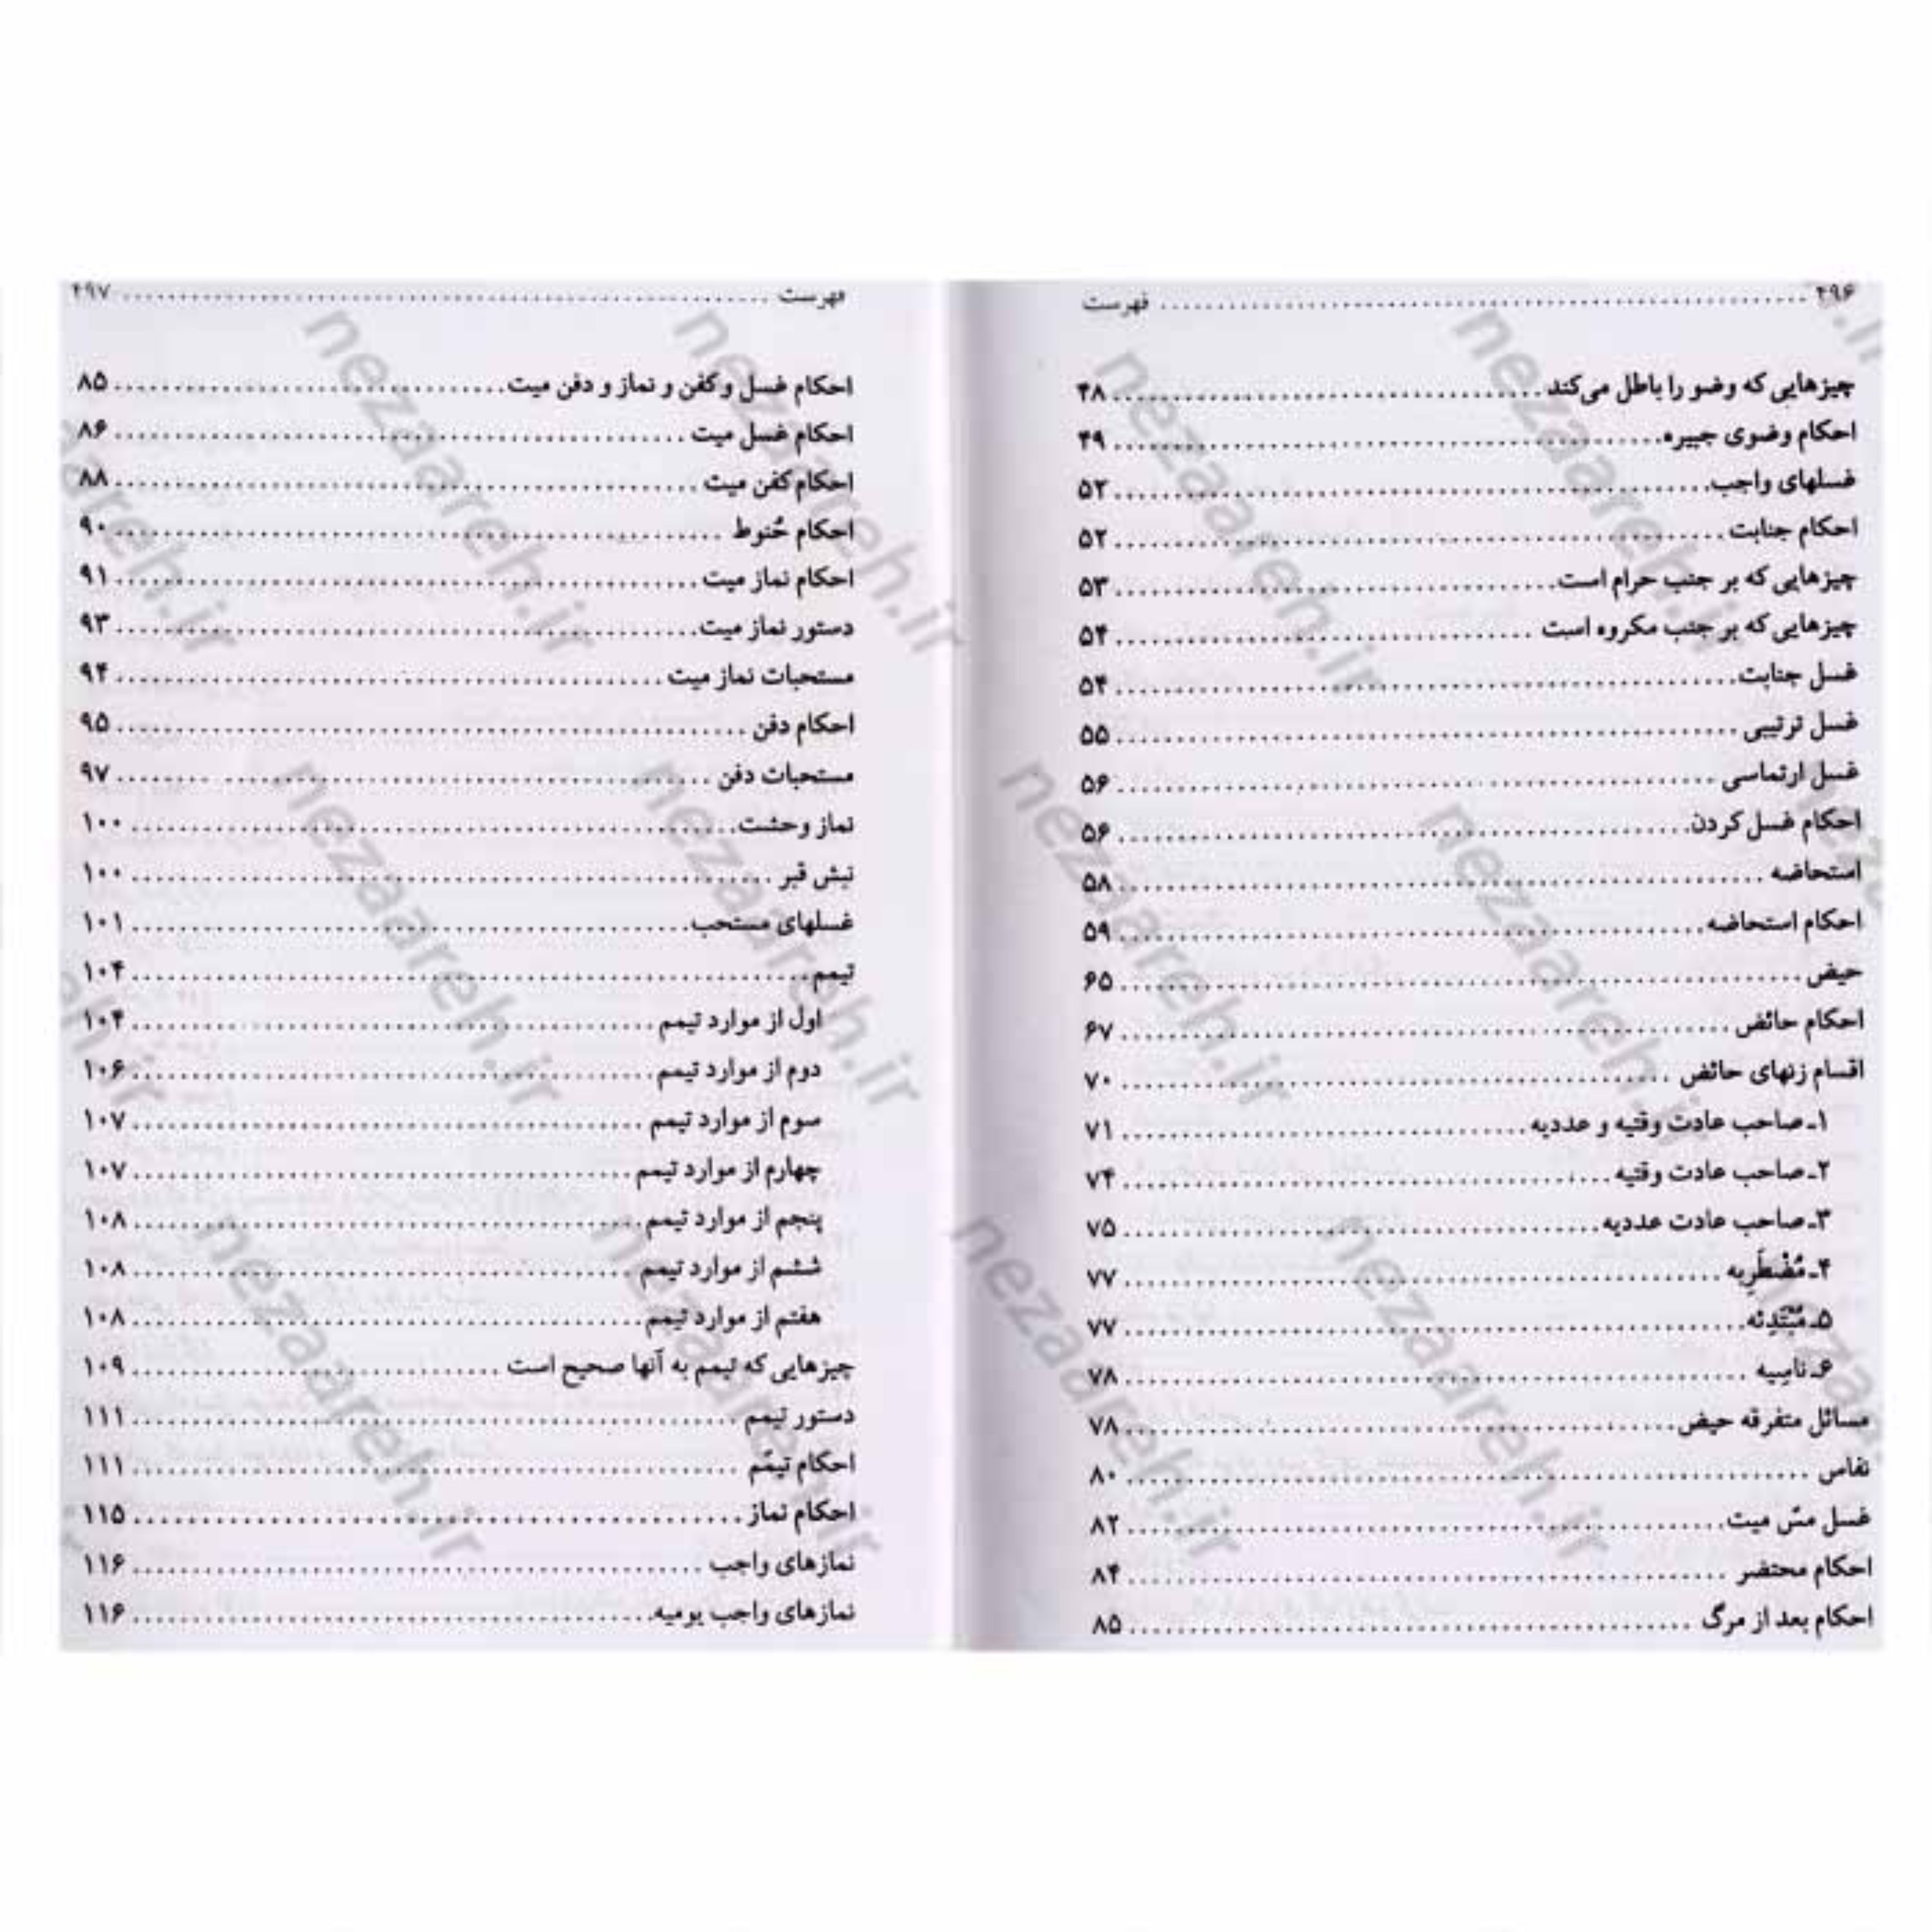 ۴۹۶ ........ فهرست
چیزهایی که وضو را باطل می‌کند ........ ۴۸
احکام وضوی جبیره ........ ۴۹
غسلهای واجب ........ ۵۲
احکام جنابت ........ ۵۲
چیزهایی که بر جنب حرام است ........ ۵۳
چیزهایی که بر جنب مکروه است ........ ۵۴
غسل جنابت ........ ۵۴
غسل ترتیبی ........ ۵۵
غسل ارتماسی ........ ۵۶
احکام غسل کردن ........ ۵۶
استحاضه ........ ۵۸
احکام استحاضه ........ ۵۹
حیض ........ ۶۵
احکام حائض ........ ۶۷
اقسام زنهای حائض ........ ۷۰
۱ـ صاحب عادت وقتیه و عددیه ........ ۷۱
۲ـ صاحب عادت وقتیه ........ ۷۴
۳ـ صاحب عادت عددیه ........ ۷۵
۴ـ مُضْطَرِبه ........ ۷۷
۵ـ مُبْتَدِئه ........ ۷۷
۶ـ ناسیه ........ ۷۸
مسائل متفرقه حیض ........ ۷۸
نفاس ........ ۸۰
غسل مسّ میت ........ ۸۲
احکام محتضر ........ ۸۴
احکام بعد از مرگ ........ ۸۵
فهرست ........ ۴۹۷
احکام غسل و کفن و نماز و دفن میت ........ ۸۵
احکام غسل میت ........ ۸۶
احکام کفن میت ........ ۸۸
احکام حُنوط ........ ۹۰
احکام نماز میت ........ ۹۱
دستور نماز میت ........ ۹۳
مستحبات نماز میت ........ ۹۴
احکام دفن ........ ۹۵
مستحبات دفن ........ ۹۷
نماز وحشت ........ ۱۰۰
نبش قبر ........ ۱۰۰
غسلهای مستحب ........ ۱۰۱
تیمم ........ ۱۰۴
اول از موارد تیمم ........ ۱۰۴
دوم از موارد تیمم ........ ۱۰۶
سوم از موارد تیمم ........ ۱۰۷
چهارم از موارد تیمم ........ ۱۰۷
پنجم از موارد تیمم ........ ۱۰۸
ششم از موارد تیمم ........ ۱۰۸
هفتم از موارد تیمم ........ ۱۰۸
چیزهایی که تیمم به آنها صحیح است ........ ۱۰۹
دستور تیمم ........ ۱۱۱
احکام تیمّم ........ ۱۱۱
احکام نماز ........ ۱۱۵
نمازهای واجب ........ ۱۱۶
نمازهای واجب یومیه ........ ۱۱۶
nezaareh.ir